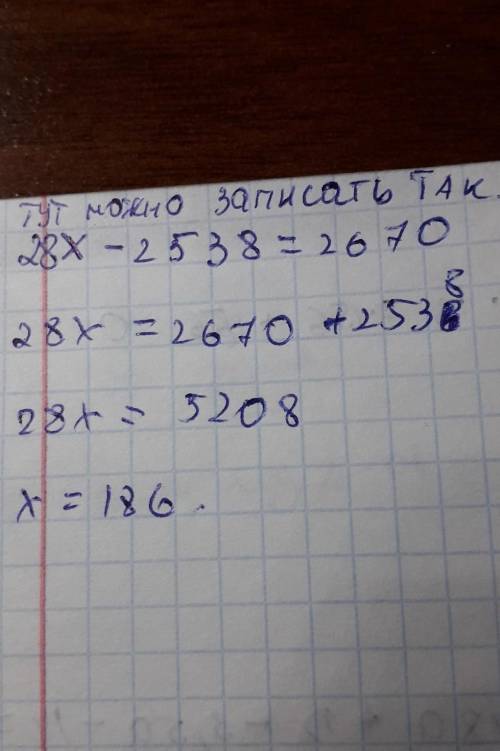 тут можно записать так.
28x - 2538 = 2670
28x = 2670 + 2538
28x = 5208
x = 186.